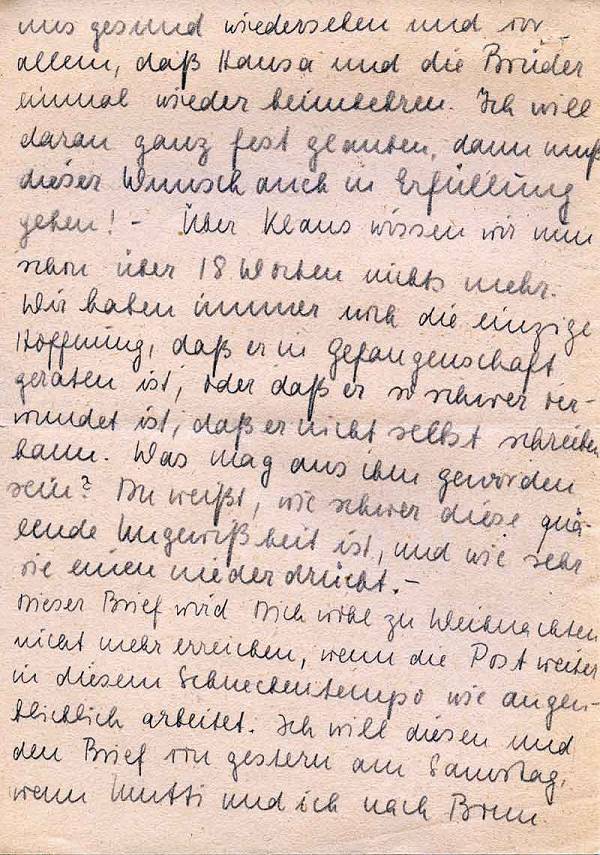 uns gesund wiedersehen und vor
allem, daß Hansa und die Brüder
einmal wieder heimkehren. Ich will
daran ganz fest glauben, dann muß
dieser Wunsch auch in Erfüllung
gehen! – Über Klaus wissen wir nun
schon über 18 Wochen nichts mehr.
Wir haben immer noch die einzige
Hoffnung, daß er in Gefangenschaft
geraten ist, oder daß er so schwer ver-
wundet ist, daß er nicht selbst schreiben
kann. Was mag aus ihm geworden
sein? Du weißt, wie schwer diese quä-
lende Ungewißheit ist, und wie sehr
sie einen niederdrückt. –
Dieser Brief wird Dich wohl zu Weihnachten
nicht mehr erreichen, wenn die Post weiter
in diesem Schneckentempo wie augen-
blicklich arbeitet. Ich will diesen und
den Brief von gestern am Samstag,
wenn Mutti und ich nach Bonn